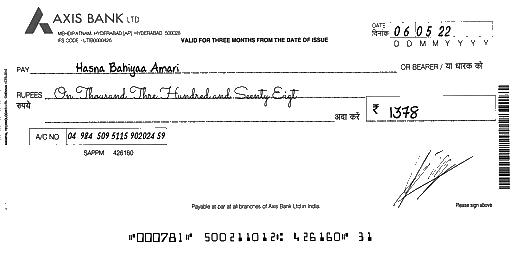 AXIS BANK LTD
MEHDIPATNAM, HYDERABAD [AP] - HYDERABAD 500028
IFS CODE - UTIB0000426
VALID FOR THREE MONTHS FROM THE DATE OF ISSUE
DATE
दिनांक 06 05 22
D D M M Y Y Y Y
PAY Hasna Bahiyaa Amari OR BEARER / या धारक को
RUPEES On Thousand Thre Hundred and Seenty Eigt
रुपये अदा करें ₹ 1378
A/C NO 04 984 509 5115 902024 59
SAPPM 426160
Payable at par at all branches of Axis Bank Ltd in India.
Please sign above
"000781" 500211012: 426160" 31